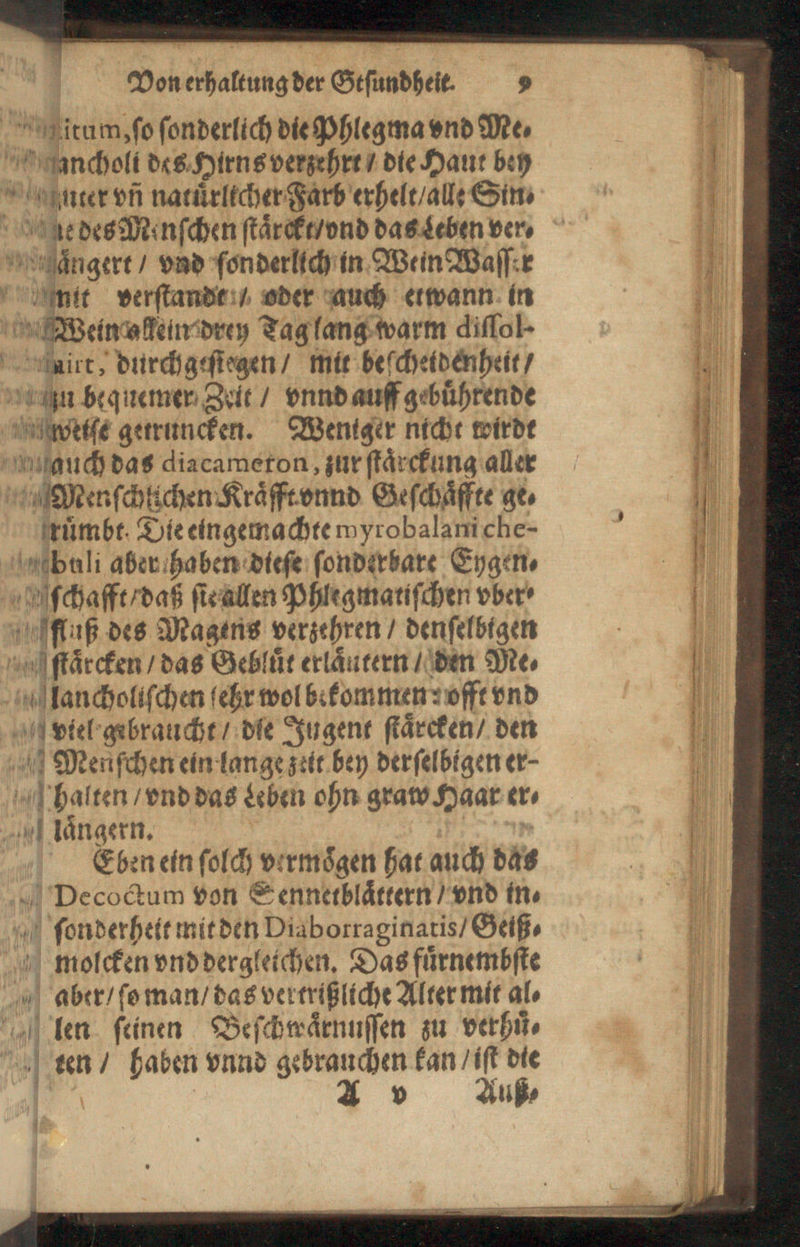 Von erhaltung der Gesundheit. 9
itum, so sonderlich die Phlegma vnd Me-
ancholi des Hirns verzehrt / die Haut bey
guter vñ natůrlicher Farb erhelt / alle Sin-
ne des Menschen stårckt / vnd das Leben ver-
långert / vnd sonderlich in Wein Wasser
mit verstandt / oder auch etwann in
Wein allein drey Tag lang warm dissol-
uirt, durchgestegen / mit bescheidenheit /
zu bequemer Zeit / vnnd auff gebührende
weise getruncken. Weniger nicht wirdt
auch das diacameron, zur stårckung aller
Menschlichen Kråfft vnnd Geschåffte ge-
růmbt. Die eingemachte myrobalani che-
buli aber haben diese sonderbare Eygen-
schafft / daß sie allen Phlegmatischen vber-
fluß des Magens verzehren / denselbigen
stårcken / das Geblůt erlåutern / den Me-
lancholischen sehr wol bekommen: offt vnd
viel gebraucht / die Jugent stårcken / den
Menschen ein lange zeit bey derselbigen er-
halten / vnd das Leben ohn graw Haar er-
långern.
Eben ein solch vermögen hat auch das
Decoctum von Sennetblåttern / vnd in-
sonderheit mit den Diaborraginatis / Geiß-
molcken vnd dergleichen. Das fůrnembste
aber / so man / das vertrißliche Alter mit al-
len seinen Beschwårnussen zu verhů-
ten / haben vnnd gebrauchen kan / ist die
A v Auß-